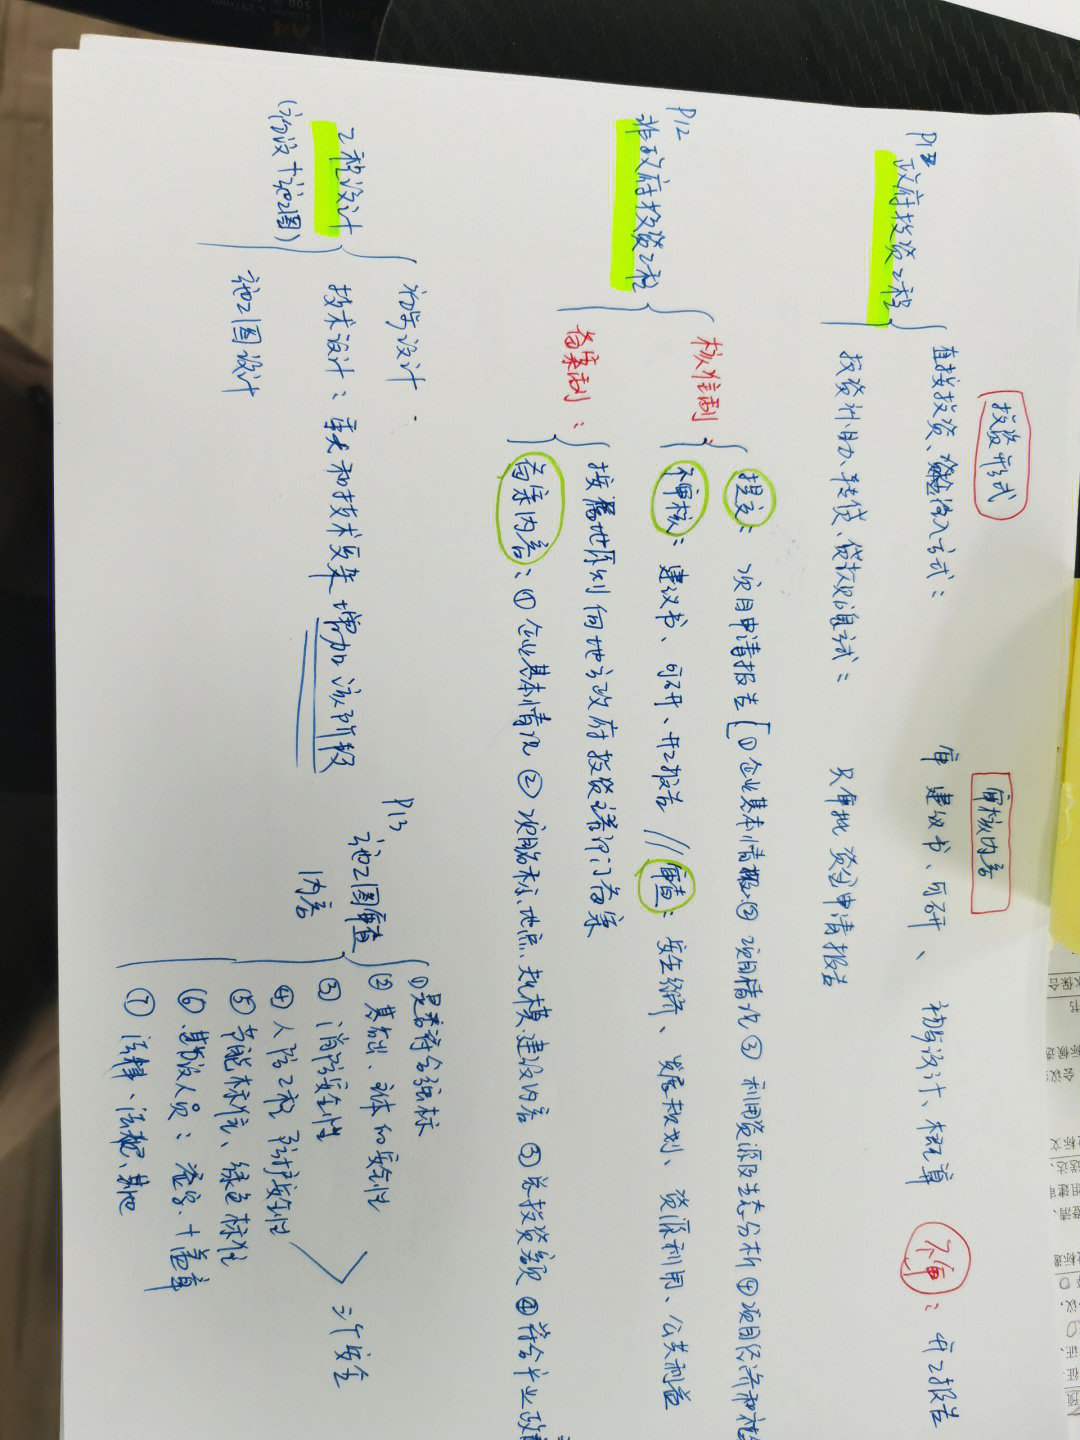 投资形式 审核内容
P12
政府投资工程
直接投资、资金注入方式： 审 建议书、可研、初步设计、概算 不审：开工报告
投资补助、转贷、贷款贴息方式： 只审批 资金申请报告
P12
非政府投资工程
核准制：
提交：项目申请报告[①企业基本情况②项目情况③利用资源及生态分析④项目经济和社
不审核：建议书、可研、开工报告 // 审查：安全经济、发展规划、资源利用、公共利益
备案制：
按属地原则向地方政府投资 部门备案
备案内容：①企业基本情况②项目名称、地点、规模、建设内容③总投资额④符合产业政
工程设计
(初设+施工图)
初步设计
技术设计：重大和技术复杂 增加该阶段
施工图设计
P13
施工图审查
内容
①是否符合强标
②基础、主体的安全性
③消防安全性
④人防工程 防护安全性
三个安全
⑤节能标准、绿色标准
⑥勘设人员：签字+盖章
⑦法律、法规、其他
A4